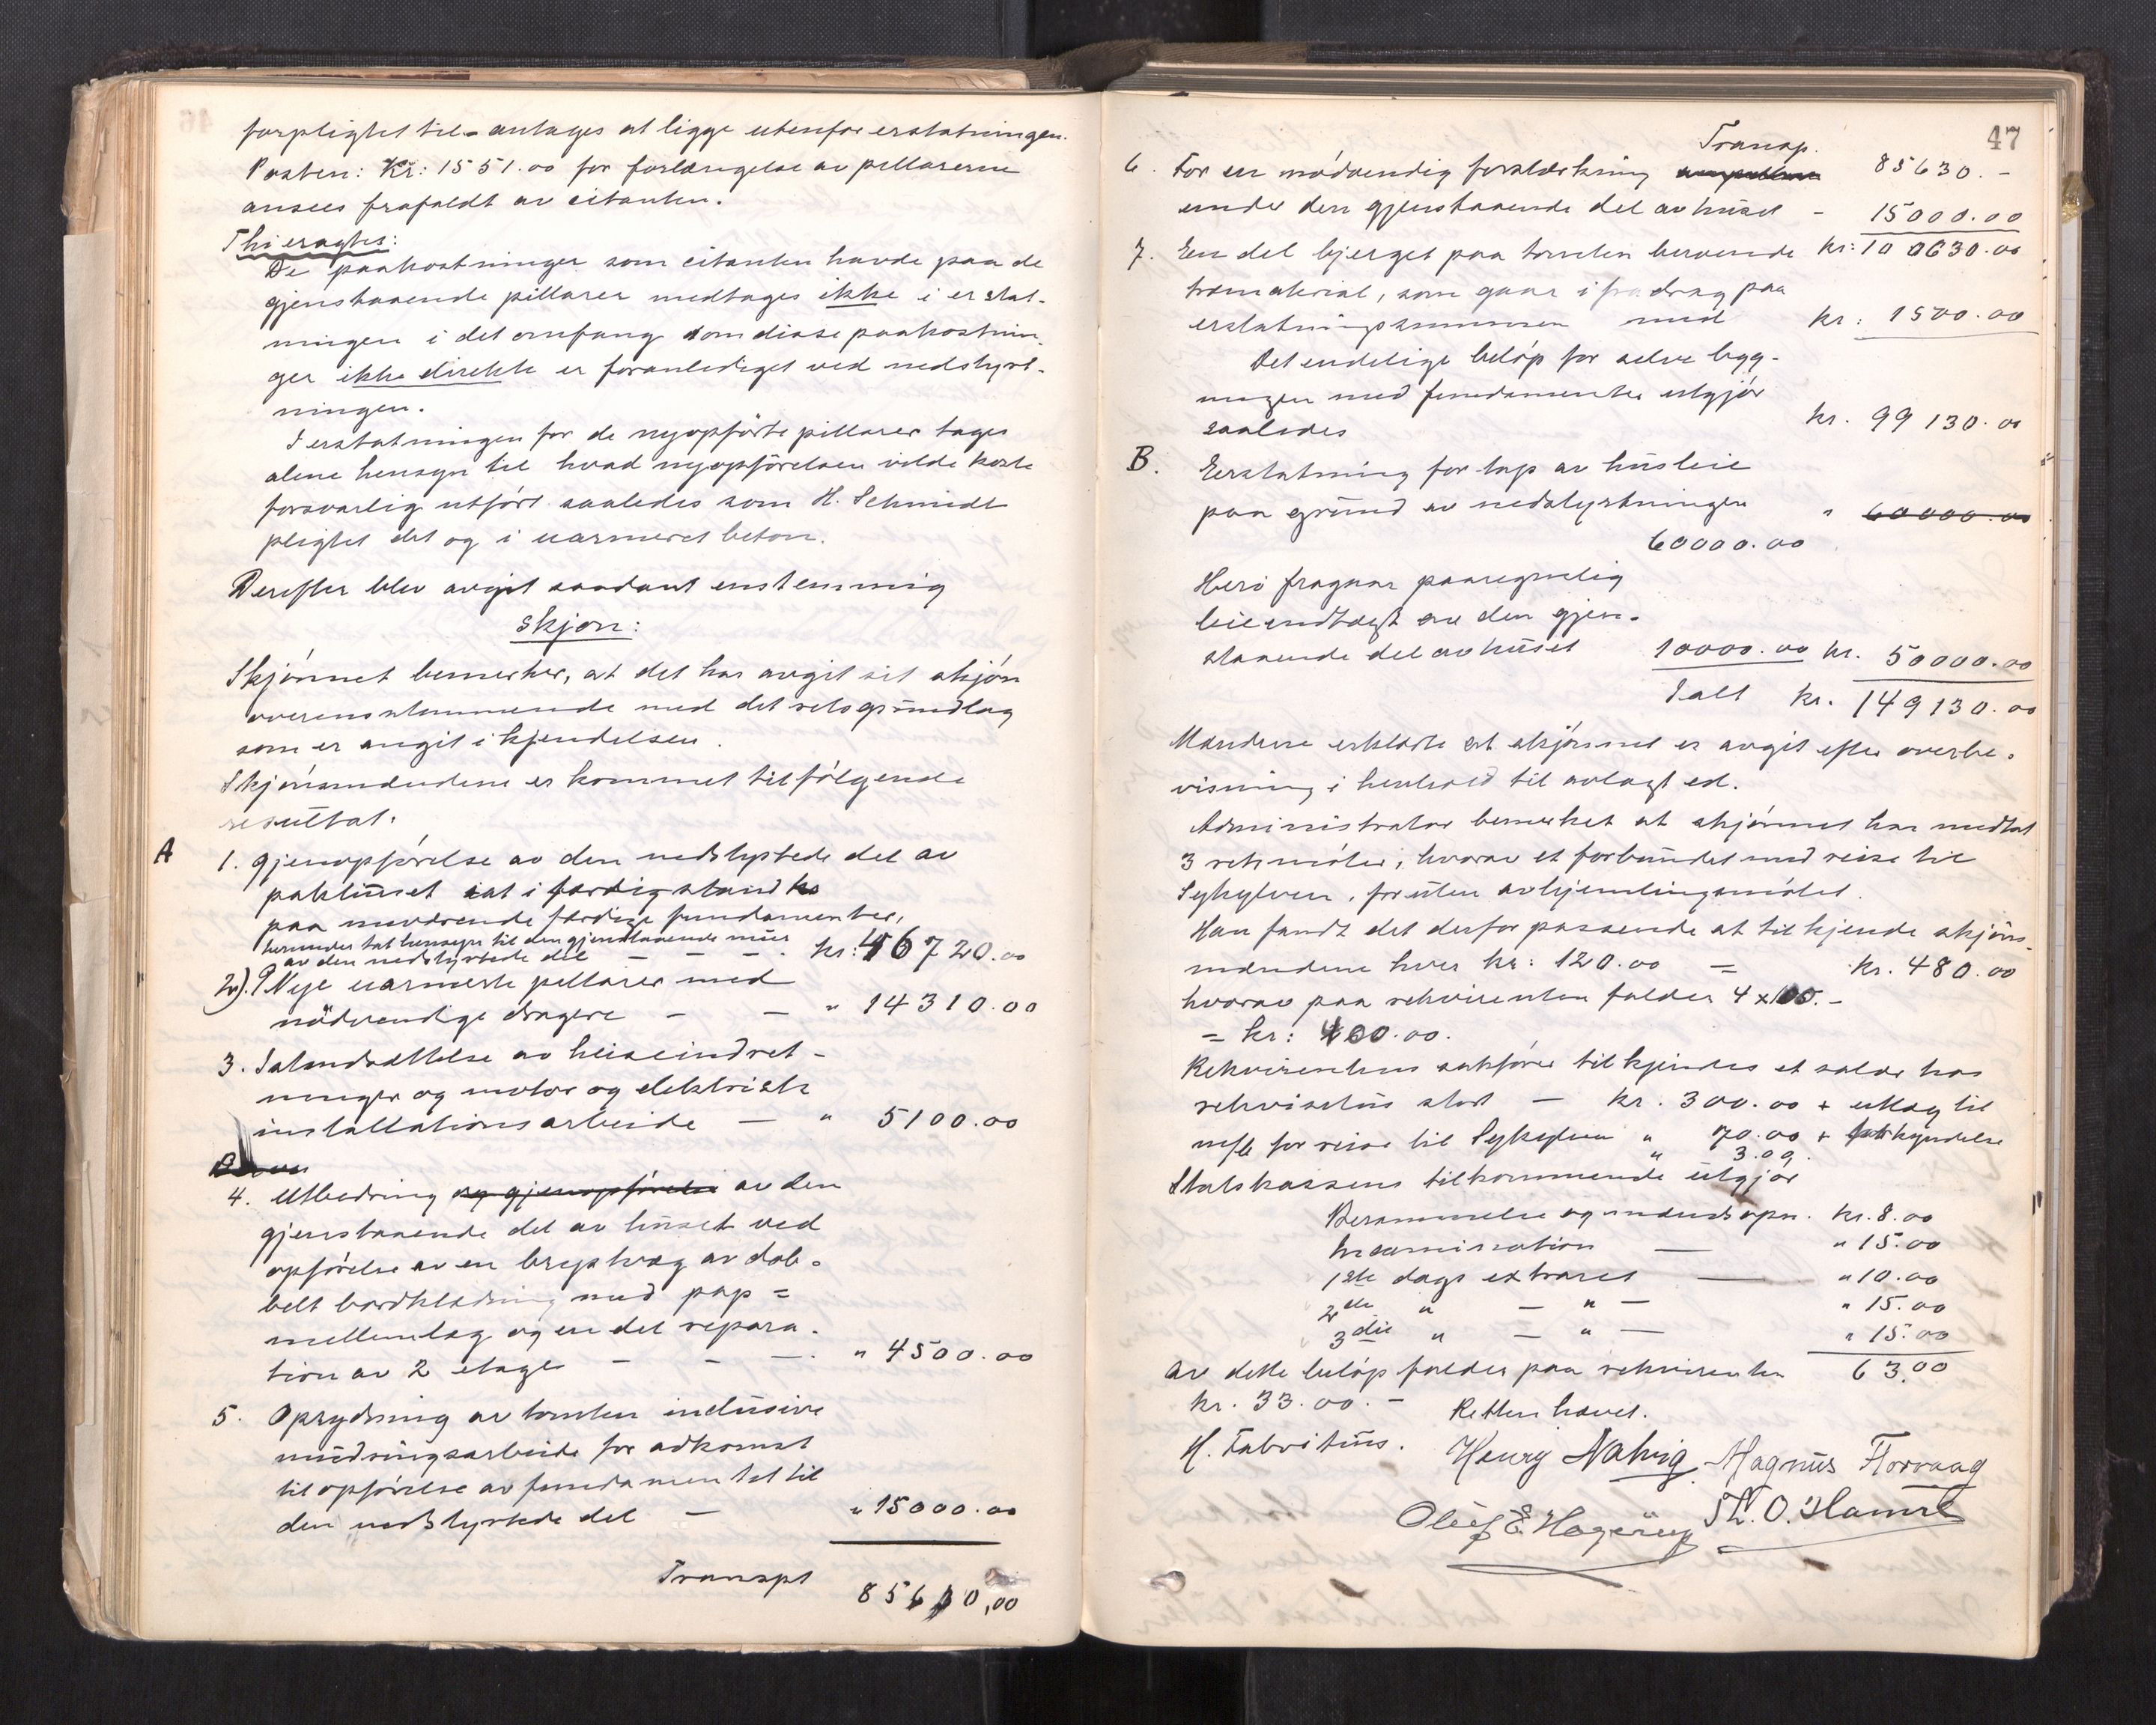 forpligtet til - antages at ligge utenfor erstatningen.
Posten: Kr: 1551.00 for forlængelse av pillarerne
ansees frafaldt av citanten.
Thi eragtes:
De paakostninger som citanten havde paa de
gjenstaaende pillarer medtages ikke i erstat-
ningen i det omfang som disse paakostnin-
ger ikke direkte er foranlediget ved nedstyrt-
ningen.
I erstatningen for de nyopførte pillarer tages
alene hensyn til hvad nyopførelsen vilde koste
forsvarlig utført saaledes som H. Schmidt
pligtet det og i uarmeret beton.
Derefter blev avgit saadant enstemmig
skjøn:
Skjønnet bemerker, at det har avgit sit skjøn
overensstemmende med det retsgrundlag
som er angit i kjendelsen.
Skjønsmændene er kommet til følgende
resultat:
A 1. gjenopførelse av den nedstyrtede del av
pakhuset sat i færdig stand
paa nuværende færdige fundamenter,
herunder tat hensyn til den gjenstaaende mur
av den nedstyrtede del - - - kr: 46720.00
2). Nye uarmerte pillarer med
nödvendige dragere - - " 14310.00
3. Istandsættelse av heiseindret-
ninger og motor og elektriske
installationsarbeide - " 5100.00
4. Utbedring og gjenopførelse av den
gjenstaaende del av huset ved
opførelse av en brystvæg av dob-
belt bordklædning med pap =
mellemlag og en del repara-
tion av 2 etage - - - " 4500.00
5. Oprydning av tomten inclusive
mudringsarbeide for adkomst
til opførelse av fundamentet til
den nedstyrtede del - " 15000.00
Transpt 85630,00
47
Transp.
6. For en nødvendig forstærkning 85630.-
under den gjenstaaende del av huset - 15000.00
7. En del bjerget paa tomten beroende kr: 100630.00
træmaterial, som gaar i fradrag paa
erstatningssummen med kr: 1500.00
Det endelige beløp for selve byg-
ningen med fundamenter utgjør
saaledes kr. 99130.00
B. Erstatning for tap av husleie
paa grund av nedstyrtningen " 60000.00
60000.00
Heri fragaar paaregnelig
leieindtægt av den gjen-
staaende del av huset 10000.00 kr. 50000.00
Ialt kr. 149130.00
Mændene erklærte at skjønnet er avgit efter overbe-
visning i henhold til avlagt ed.
Administrator bemerket at skjønnet har medtat
3 retsmøter, hvorav et forbundet med reise til
Sykylven, foruten avhjemlingsmøtet.
Han fandt det derfor passende at tilkjende skjøns-
mændene hver kr: 120.00 = kr. 480.00
hvorav paa rekvirenten falder 4 x 100.-
= kr: 400.00.
Rekvirentens sakfører tilkjendes et salær hos
rekvisitus stort - kr. 300.00 + utlæg til
for reise til Sykylven " 70.00 + forkyndelse
" 3.09.
Statskassens tilkommende utgjør
Berammelse og mændsopn. kr. 8.00
Incamination — " 15.00
1ste dags extraret — " 10.00
2den " — " — " 15.00
3die " — " — " 15.00
Av dette beløp falder paa rekvirenten 63.00
kr. 33.00.- Retten hævet.
H. Fabritius. Henry Nahvig. Magnus Florvaag
Oluf E. Hagerup Th. O. Hamre